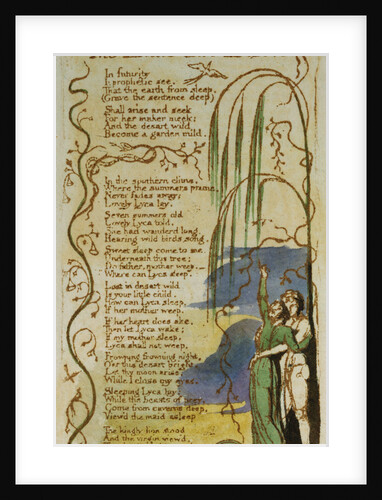 In futurity
I prophetic see,
That the earth from sleep,
(Grave the sentence deep)
Shall arise and seek
For her maker meek:
And the desart wild
Become a garden mild.
In the southern clime,
Where the summers prime,
Never fades away;
Lovely Lyca lay.
Seven summers old
Lovely Lyca told,
She had wanderd long,
Hearing wild birds song.
Sweet sleep come to me
Underneath this tree;
Do father, mother weep.—
Where can Lyca sleep.
Lost in desart wild
Is your little child.
How can Lyca sleep,
If her mother weep.
If her heart does ake,
Then let Lyca wake;
If my mother sleep,
Lyca shall not weep.
Frowning frowning night,
O'er this desart bright,
Let thy moon arise,
While I close my eyes.
Sleeping Lyca lay;
While the beasts of prey,
Come from caverns deep,
View'd the maid asleep
The kingly lion stood
And the virgin view'd,